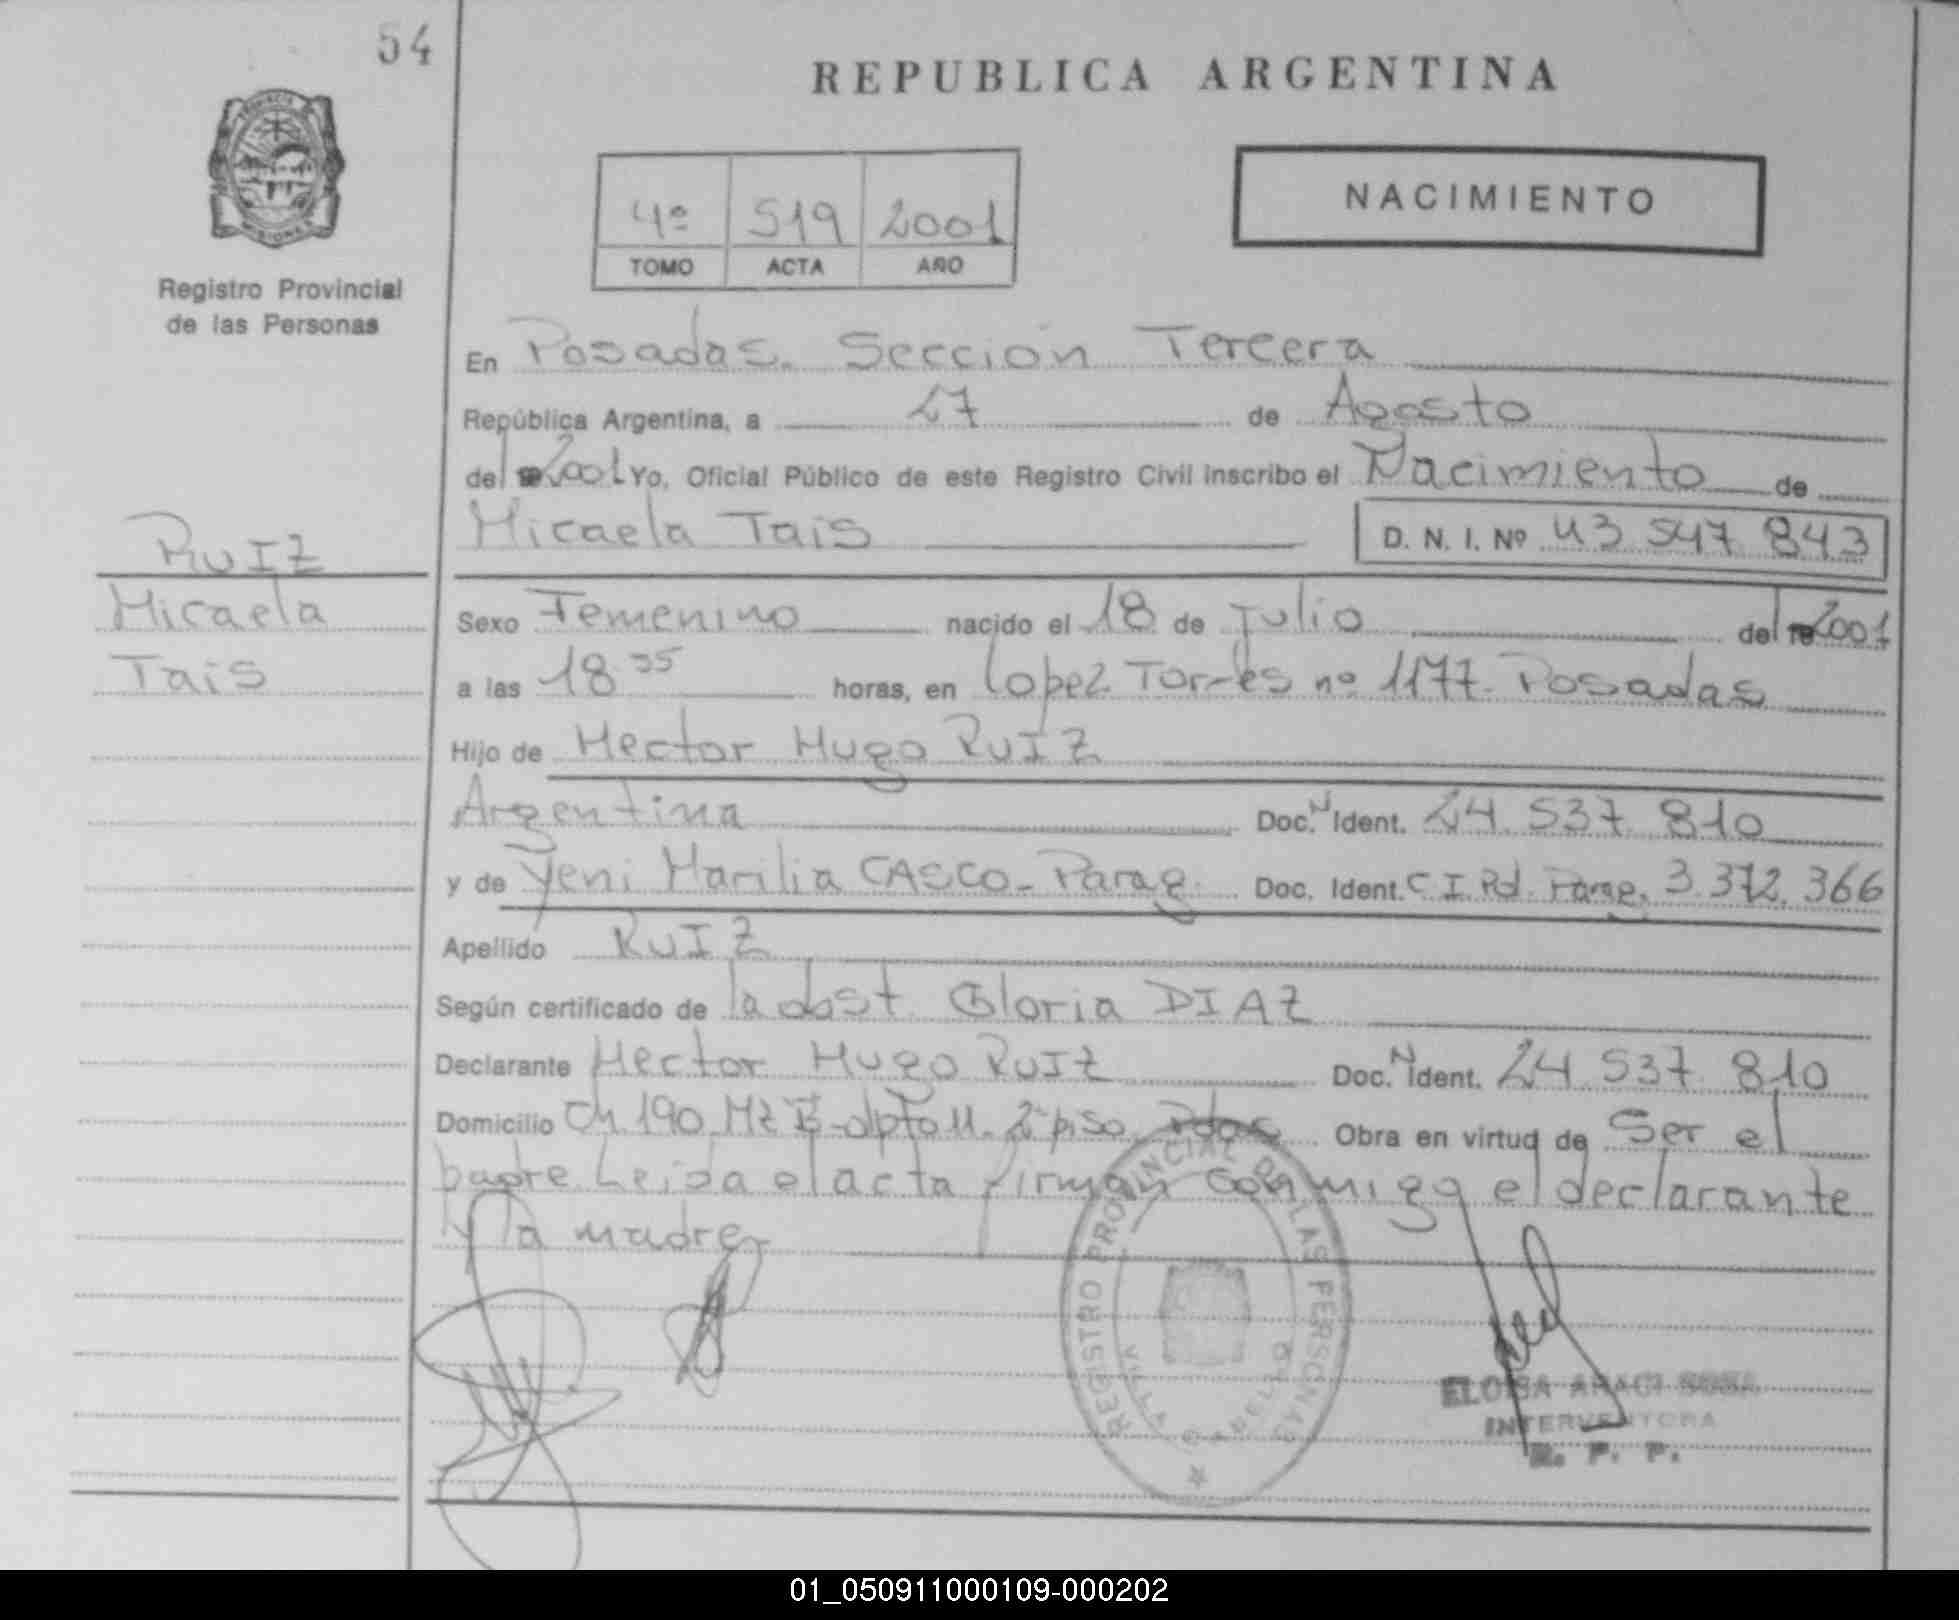 54
REPUBLICA ARGENTINA
NACIMIENTO
4º 519 2001
TOMO ACTA AÑO
Registro Provincial
de las Personas
En Posadas. Sección Tercera
República Argentina, a 27 de Agosto
del 2001 Yo, Oficial Público de este Registro Civil inscribo el Nacimiento de
Micaela Tais D. N. I. Nº 43 547 843
RUIZ
Micaela
Tais
Sexo Femenino nacido el 18 de Julio del 2001
a las 18 35 horas, en Lopez Torres nº 1177. Posadas
Hijo de Hector Hugo RUIZ
Argentina Doc. N Ident. 24 537 810
y de Yeni Marilia CASCO - Parag. Doc. Ident. C I. Pol. Parag. 3.372.366
Apellido RUIZ
Según certificado de la obst. Gloria DIAZ
Declarante Hector Hugo RUIZ Doc. N Ident. 24 537 810
Domicilio Ch 190 Mz E - dpto 11. 2º piso. Pdas Obra en virtud de Ser el
padre Leida el acta firman conmigo el declarante
y la madre
REGISTRO PROVINCIAL DE LAS PERSONAS
VILLA CABELLO
ELOISA ARACI SOSA
INTERVENTORA
R. P. P.
01_050911000109-000202